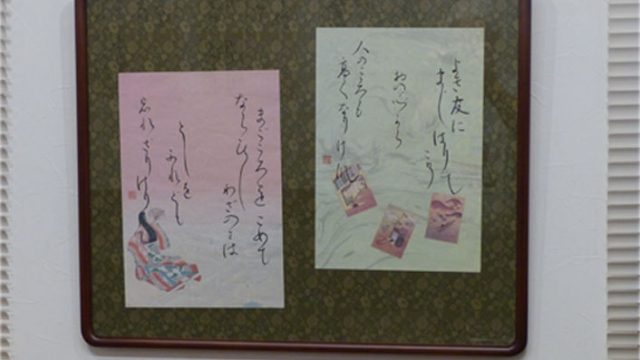 よき友に
ましはりて
こそ
おのつから
人のこころも
高くなりけれ
まこころをこめて
ならひし
わさのみは
としを
ふれとも
忘れさりけり